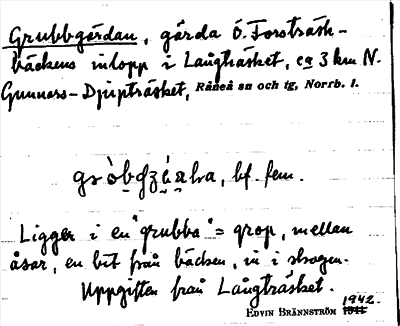 Grubbgärdan, gärda ö. Forsträsk-
bäckens inlopp i Långträsket, ca 3 km N.
Gunnars-Djupträsket, Råneå sn och tg, Norrb. l.
bf. fem.
Ligger i en "grubba" = grop, mellan
åsar, en bit från bäcken, in i skogen.
Uppgiften från Långträsket.
EDVIN BRÄNNSTRÖM 1942.